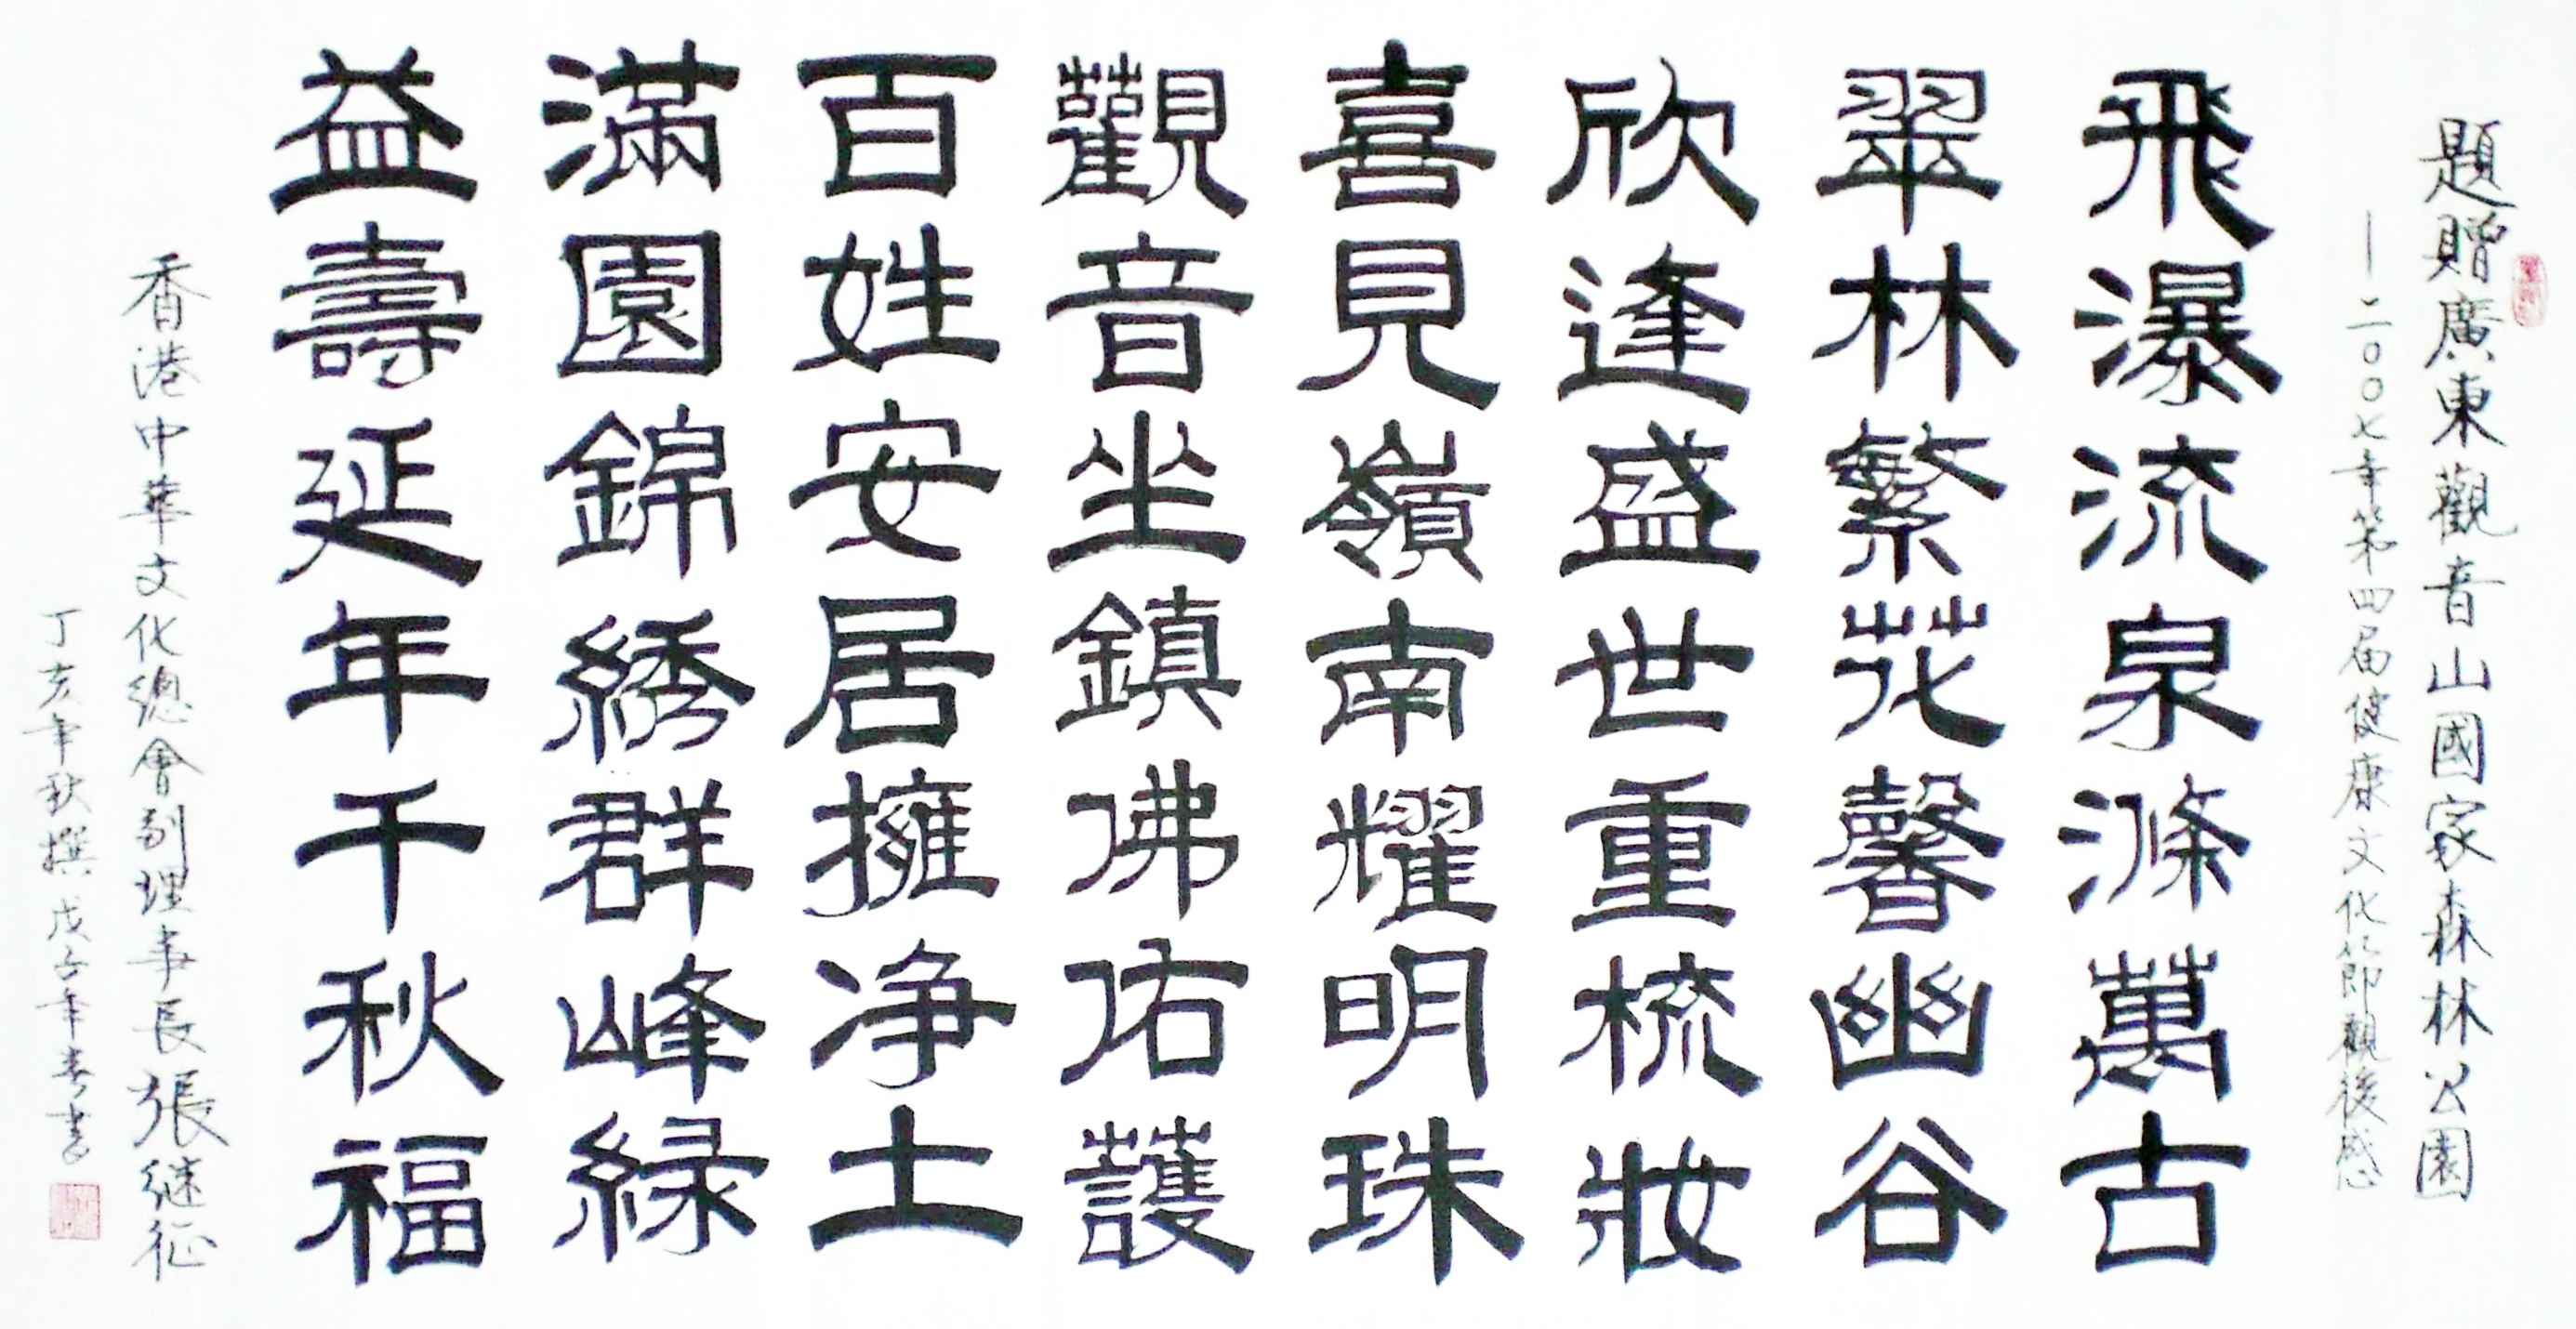 題贈廣東觀音山國家森林公園
—二〇〇七年第四届健康文化節觀後感
飛瀑流泉滌萬古
翠林繁花馨幽谷
欣逢盛世重梳妝
喜見嶺南耀明珠
觀音坐鎮佛佑護
百姓安居擁净土
滿園錦綉群峰緑
益壽延年千秋福
香港中華文化總會副理事長張继征
丁亥年秋撰 戊子年春書